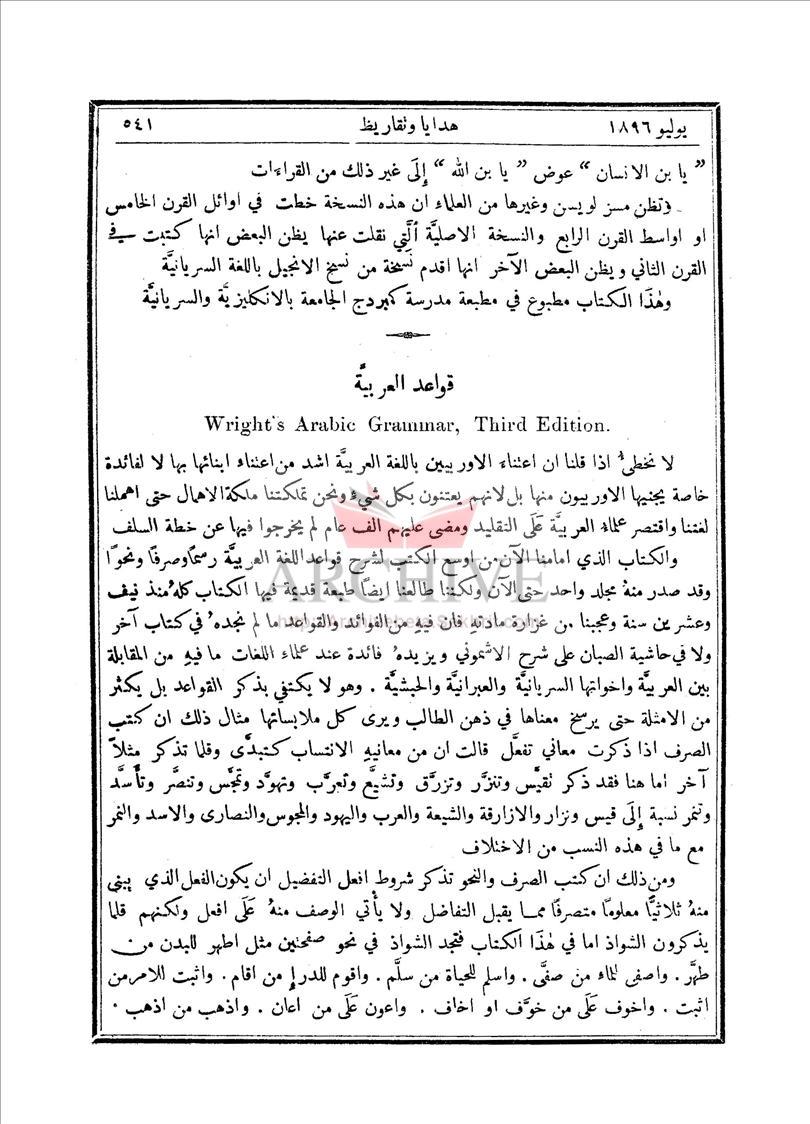 يوليو ١٨٩٦ هدايا وتقاريظ ٥٤١
” يا بن الانسان “ عوض ” يا بن الله “ إِلَى غير ذلك من القراءات
وتظن مسز لويس وغيرها من العلماء ان هذه النسخة خطت في اوائل القرن الخامس
او اواسط القرن الرابع والنسخة الاصليَّة الَّتي نقلت عنها يظن البعض انها كتبت في
القرن الثاني ويظن البعض الآخر انها اقدم نسخة من نسخ الانجيل باللغة السريانيَّة
وهٰذَا الكتاب مطبوع في مطبعة مدرسة كمبردج الجامعة بالانكليزيَّة والسريانيَّة
قواعد العربيَّة
Wright's Arabic Grammar, Third Edition.
لا نخطئُ اذا قلنا ان اعتناء الاوربيين باللغة العربيَّة اشد من اعتناء ابنائها بها لا لفائدة
خاصة يجنيها الاوربيون منها بل لانهم يعتنون بكل شيءٍ ونحن تملكتنا ملكة الاهمال حتى اهملنا
لغتنا واقتصر علماء العربيَّة عَلَى التقليد ومضى عليهم الف عام لم يخرجوا فيها عن خطة السلف
والكتاب الذي امامنا الآن من اوسع الكتب لشرح قواعد اللغة العربيَّة رسمًا وصرفًا ونحوًا
وقد صدر منهُ مجلد واحد حتى الآن ولكننا طالعنا ايضًا طبعة قديمة فيها الكتاب كلهُ منذ نيف
وعشرين سنة وعجبنا من غزارة مادته فان فيهِ من الفوائد والقواعد ما لم نجدهُ في كتاب آخر
ولا في حاشية الصبان على شرح الاشموني ويزيدهُ فائدة عند علماء اللغات ما فيهِ من المقابلة
بين العربيَّة واخواتها السريانيَّة والعبرانيَّة والحبشيَّة . وهو لا يكتفي بذكر القواعد بل يكثر
من الامثلة حتى يرسخ معناها في ذهن الطالب ويرى كل ملابساتها مثال ذلك ان كتب
الصرف اذا ذكرت معاني تفعَّل قالت ان من معانيهِ الانتساب كتبدَّى وقلما تذكر مثلاً
آخر اما هنا فقد ذكر تقيَّس وتنزَّر وتزرَّق وتشيَّع وتعرَّب وتهوَّد وتمجَّس وتنصَّر وتأَسَّد
وتنمر نسبة إِلَى قيس ونزار والازارقة والشيعة والعرب واليهود والمجوس والنصارى والاسد والنمر
مع ما في هذه النسب من الاختلاف
ومن ذلك ان كتب الصرف والنحو تذكر شروط افعل التفضيل ان يكون الفعل الذي يبنى
منهُ ثلاثيًّا معلومًا متصرفًا مما يقبل التفاضل ولا يأتي الوصف منهُ عَلَى افعل ولكنهم قلما
يذكرون الشواذ اما في هٰذَا الكتاب فتجد الشواذ في نحو صفحتين مثل اطهر للبدن من
طهَّر . واصفى للماء من صفَّى . واسلم للحياة من سلَّم . واقوم للدرإِ من اقام . واثبت للامر من
اثبت . واخوف عَلَى من خوَّف او اخاف . واعون عَلَى من اعان . واذهب من اذهب .
ARCHIVE